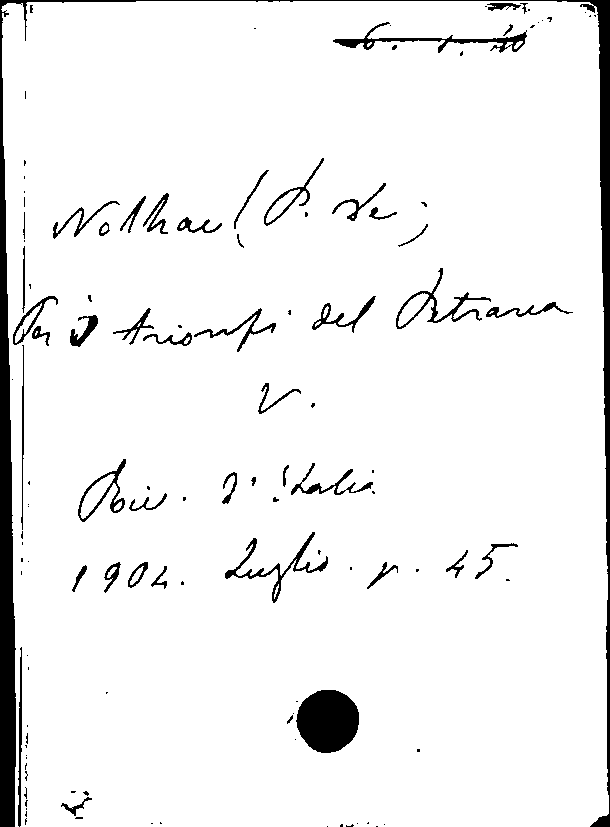 6. 1. 46
Nolhac (P. de)
Per i trionfi del Petrarca
V.
Riv. d'Italia
1904. Luglio. p. 45.